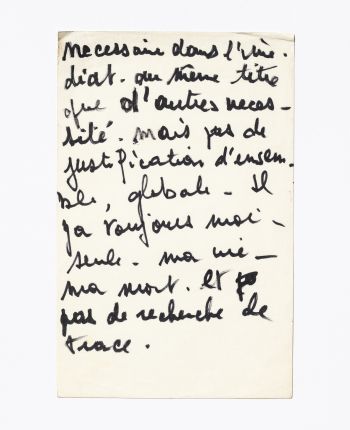 necessaire dans l'imé-
diat. au même titre
que d'autres neces-
sité. mais pas de
justification d'ensem-
ble, globale - Il
y a toujours moi-
seule. ma vie -
ma mort. et
pas de recherche de
trace.